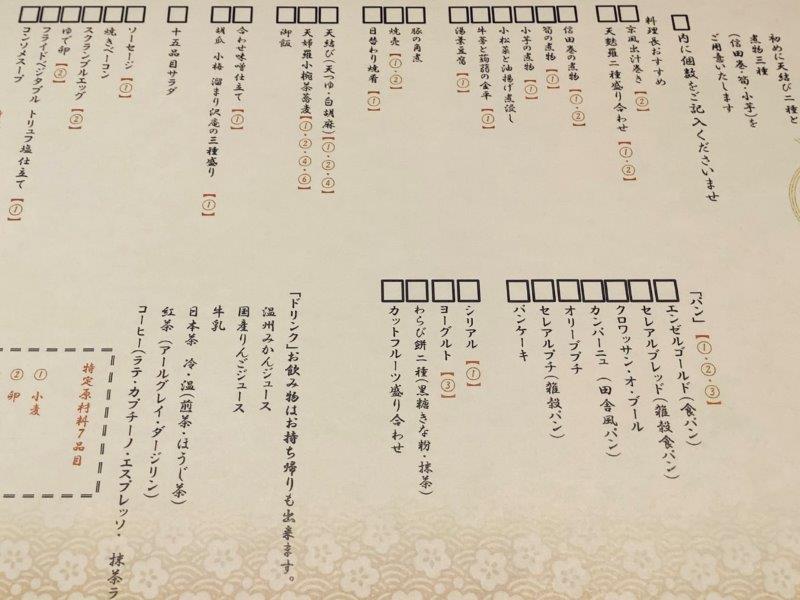 初めに天結び二種と
煮物三種
(信田巻・筍・小芋)を
ご用意いたします
□内に個数をご記入くださいませ
料理長おすすめ
□京風出汁巻き【②】
□天麩羅二種盛り合わせ【①・②】
□信田巻の煮物【①・②】
□筍の煮物【①】
□小芋の煮物【①】
□小松菜と油揚げ煮浸し【①】
□牛蒡と蒟蒻の金平【①】
□湯葉豆腐【①】
□豚の角煮
□焼売【①・②】
□日替わり焼肴【①】
□天結び(天つゆ・白胡麻)【①・②・④】
□天婦羅小椀茶蕎麦【①・②・④・⑥】
□御飯
□合わせ味噌仕立て【①】
□胡瓜 小梅 溜まり沢庵の三種盛り【①】
□十五品目サラダ
□ソーセージ【①】
□焼きベーコン
□スクランブルエッグ【②】
□ゆで卵【②】
□フライドベジタブル トリュフ塩仕立て【①】
□コンソメスープ
「パン」【①・②・③】
□エンゼルゴールド(食パン)
□セレアルブレッド(雑穀食パン)
□クロワッサン・オ・ブール
□カンパーニュ(田舎風パン)
□オリーブプチ
□セレアルプチ(雑穀パン)
□パンケーキ
□シリアル【①】
□ヨーグルト【③】
□わらび餅二種(黒糖きな粉・抹茶)
□カットフルーツ盛り合わせ
「ドリンク」お飲み物はお持ち帰りも出来ます。
温州みかんジュース
国産りんごジュース
牛乳
日本茶 冷・温(煎茶・ほうじ茶)
紅茶(アールグレイ・ダージリン)
コーヒー(ラテ・カプチーノ・エスプレッソ・抹茶ラ
特定原材料7品目
①小麦
②卵